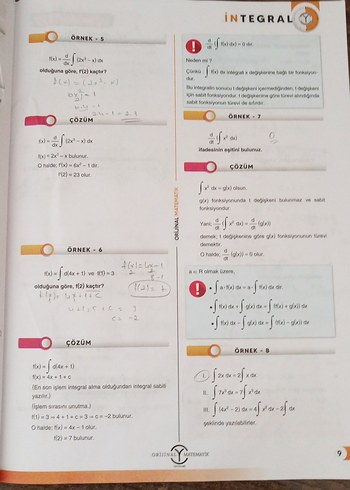 İNTEGRAL
ÖRNEK - 5
f(x) = d/dx ∫ (2x³ – x) dx
olduğuna göre, f'(2) kaçtır?
ÇÖZÜM
f(x) = d/dx ∫ (2x³ – x) dx
f(x) = 2x³ – x bulunur.
O halde; f'(x) = 6x² – 1
f'(2) = 23 olur.
ÖRNEK - 6
f(x) = ∫ d(4x + 1) ve f(1) = 3
olduğuna göre, f(2) kaçtır?
ÇÖZÜM
f(x) = ∫ d(4x + 1)
f(x) = 4x + 1 + c
(En son işlem integral alma olduğundan integral sabiti
yazılır.)
(İşlem sırasını unutma.)
f(1) = 3 ⇒ 4 + 1 + c = 3 ⇒ c = –2 bulunur.
O halde; f(x) = 4x – 1 olur.
f(2) = 7 bulunur.
ORİJİNAL MATEMATİK
d/dt ∫ f(x) dx = 0 dır.
Neden mi ?
Çünkü : ∫ f(x) dx integrali x değişkenine bağlı bir fonksiyon-
dur.
Bu integralin sonucu t değişkeni içermediğinden, t değişkeni
için sabit fonksiyondur. t değişkenine göre türevi alındığında
sabit fonksiyonun türevi de sıfırdır.
ÖRNEK - 7
d/dt (∫ x² dx)
ifadesinin eşitini bulunuz.
ÇÖZÜM
∫ x² dx = g(x) olsun.
g(x) fonksiyonunda t değişkeni bulunmaz ve sabit
fonksiyondur.
Yani; d/dt (∫ x² dx) = d/dt (g(x))
demek; t değişkenine göre g(x) fonksiyonunun türevi
demektir.
O halde; d/dt (g(x)) = 0 olur.
a ∈ R olmak üzere,
• ∫ a · f(x) dx = a · ∫ f(x) dx dir.
• ∫ f(x) dx + ∫ g(x) dx = ∫ (f(x) + g(x)) dx
• ∫ f(x) dx – ∫ g(x) dx = ∫ (f(x) – g(x)) dx
ÖRNEK - 8
I. ∫ 2x dx = 2 ∫ x dx
II. ∫ 7x³ dx = 7 ∫ x³ dx
III. ∫ (4x² – 2) dx = 4 ∫ x² dx – 2 ∫ dx
şeklinde yazılabilirler.
ORİJİNAL MATEMATİK
9